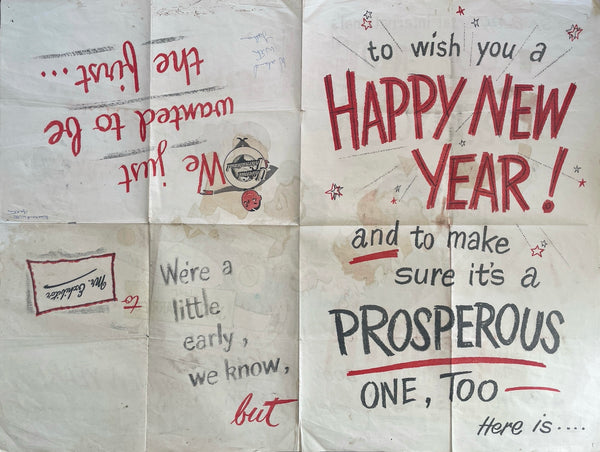 to
Mr. Exhibitor
We just
wanted to be
the first...
We're a
little
early,
we know,
but
to wish you a
HAPPY NEW
YEAR!
and to make
sure it's a
PROSPEROUS
ONE, TOO —
Here is....